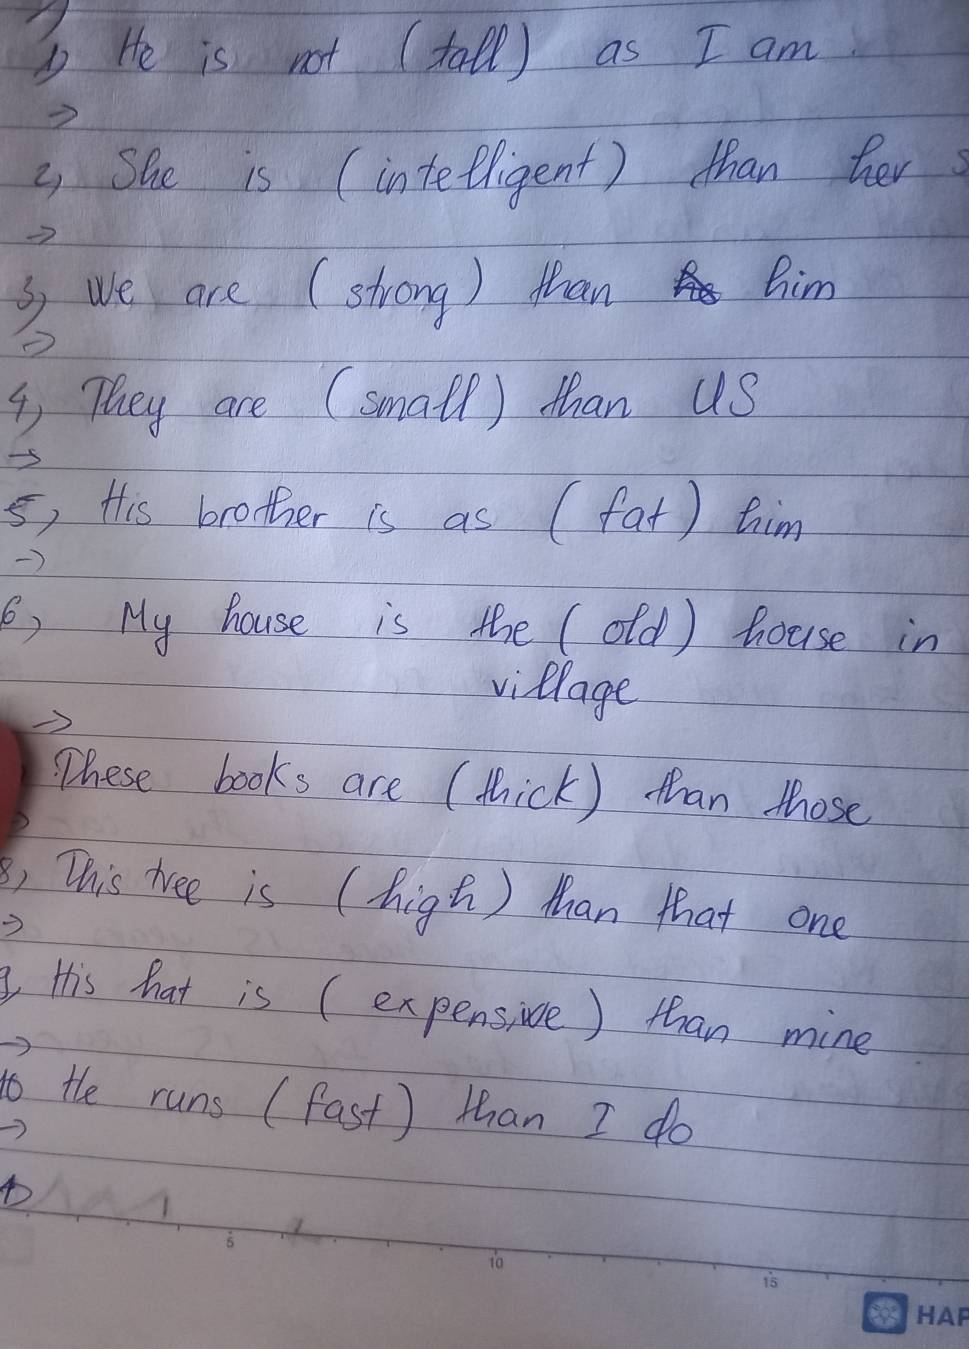 1) He is not (tall) as I am.
→
2) She is (intelligent) than her
→
3) We are (strong) than him
→
4) They are (small) than US
→
5) His brother is as (fat) him
→
6) My house is the (old) house in
village
→
These books are (thick) than those
8) This tree is (high) than that one
→
9) His hat is (expensive) than mine
→
10 He runs (fast) than I do
→
5 10 15
HAP